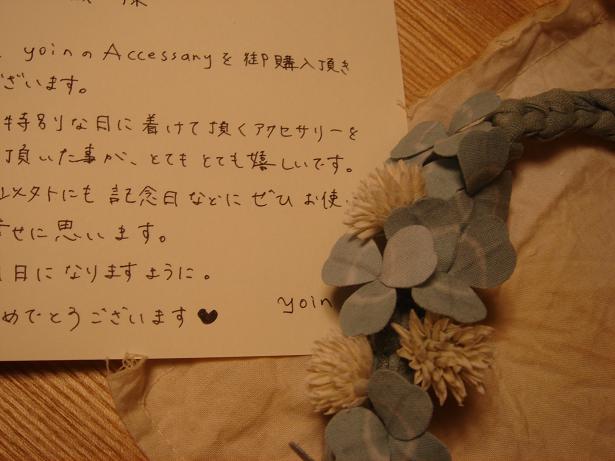 様
yoinのAccessaryを御購入頂き
ございます。
特別な日に着けて頂くアクセサリーを
頂いた事が、とてもとても嬉しいです。
以外にも記念日などにぜひお使
幸せに思います。
日になりますように。
めでとうございます♥
yoin